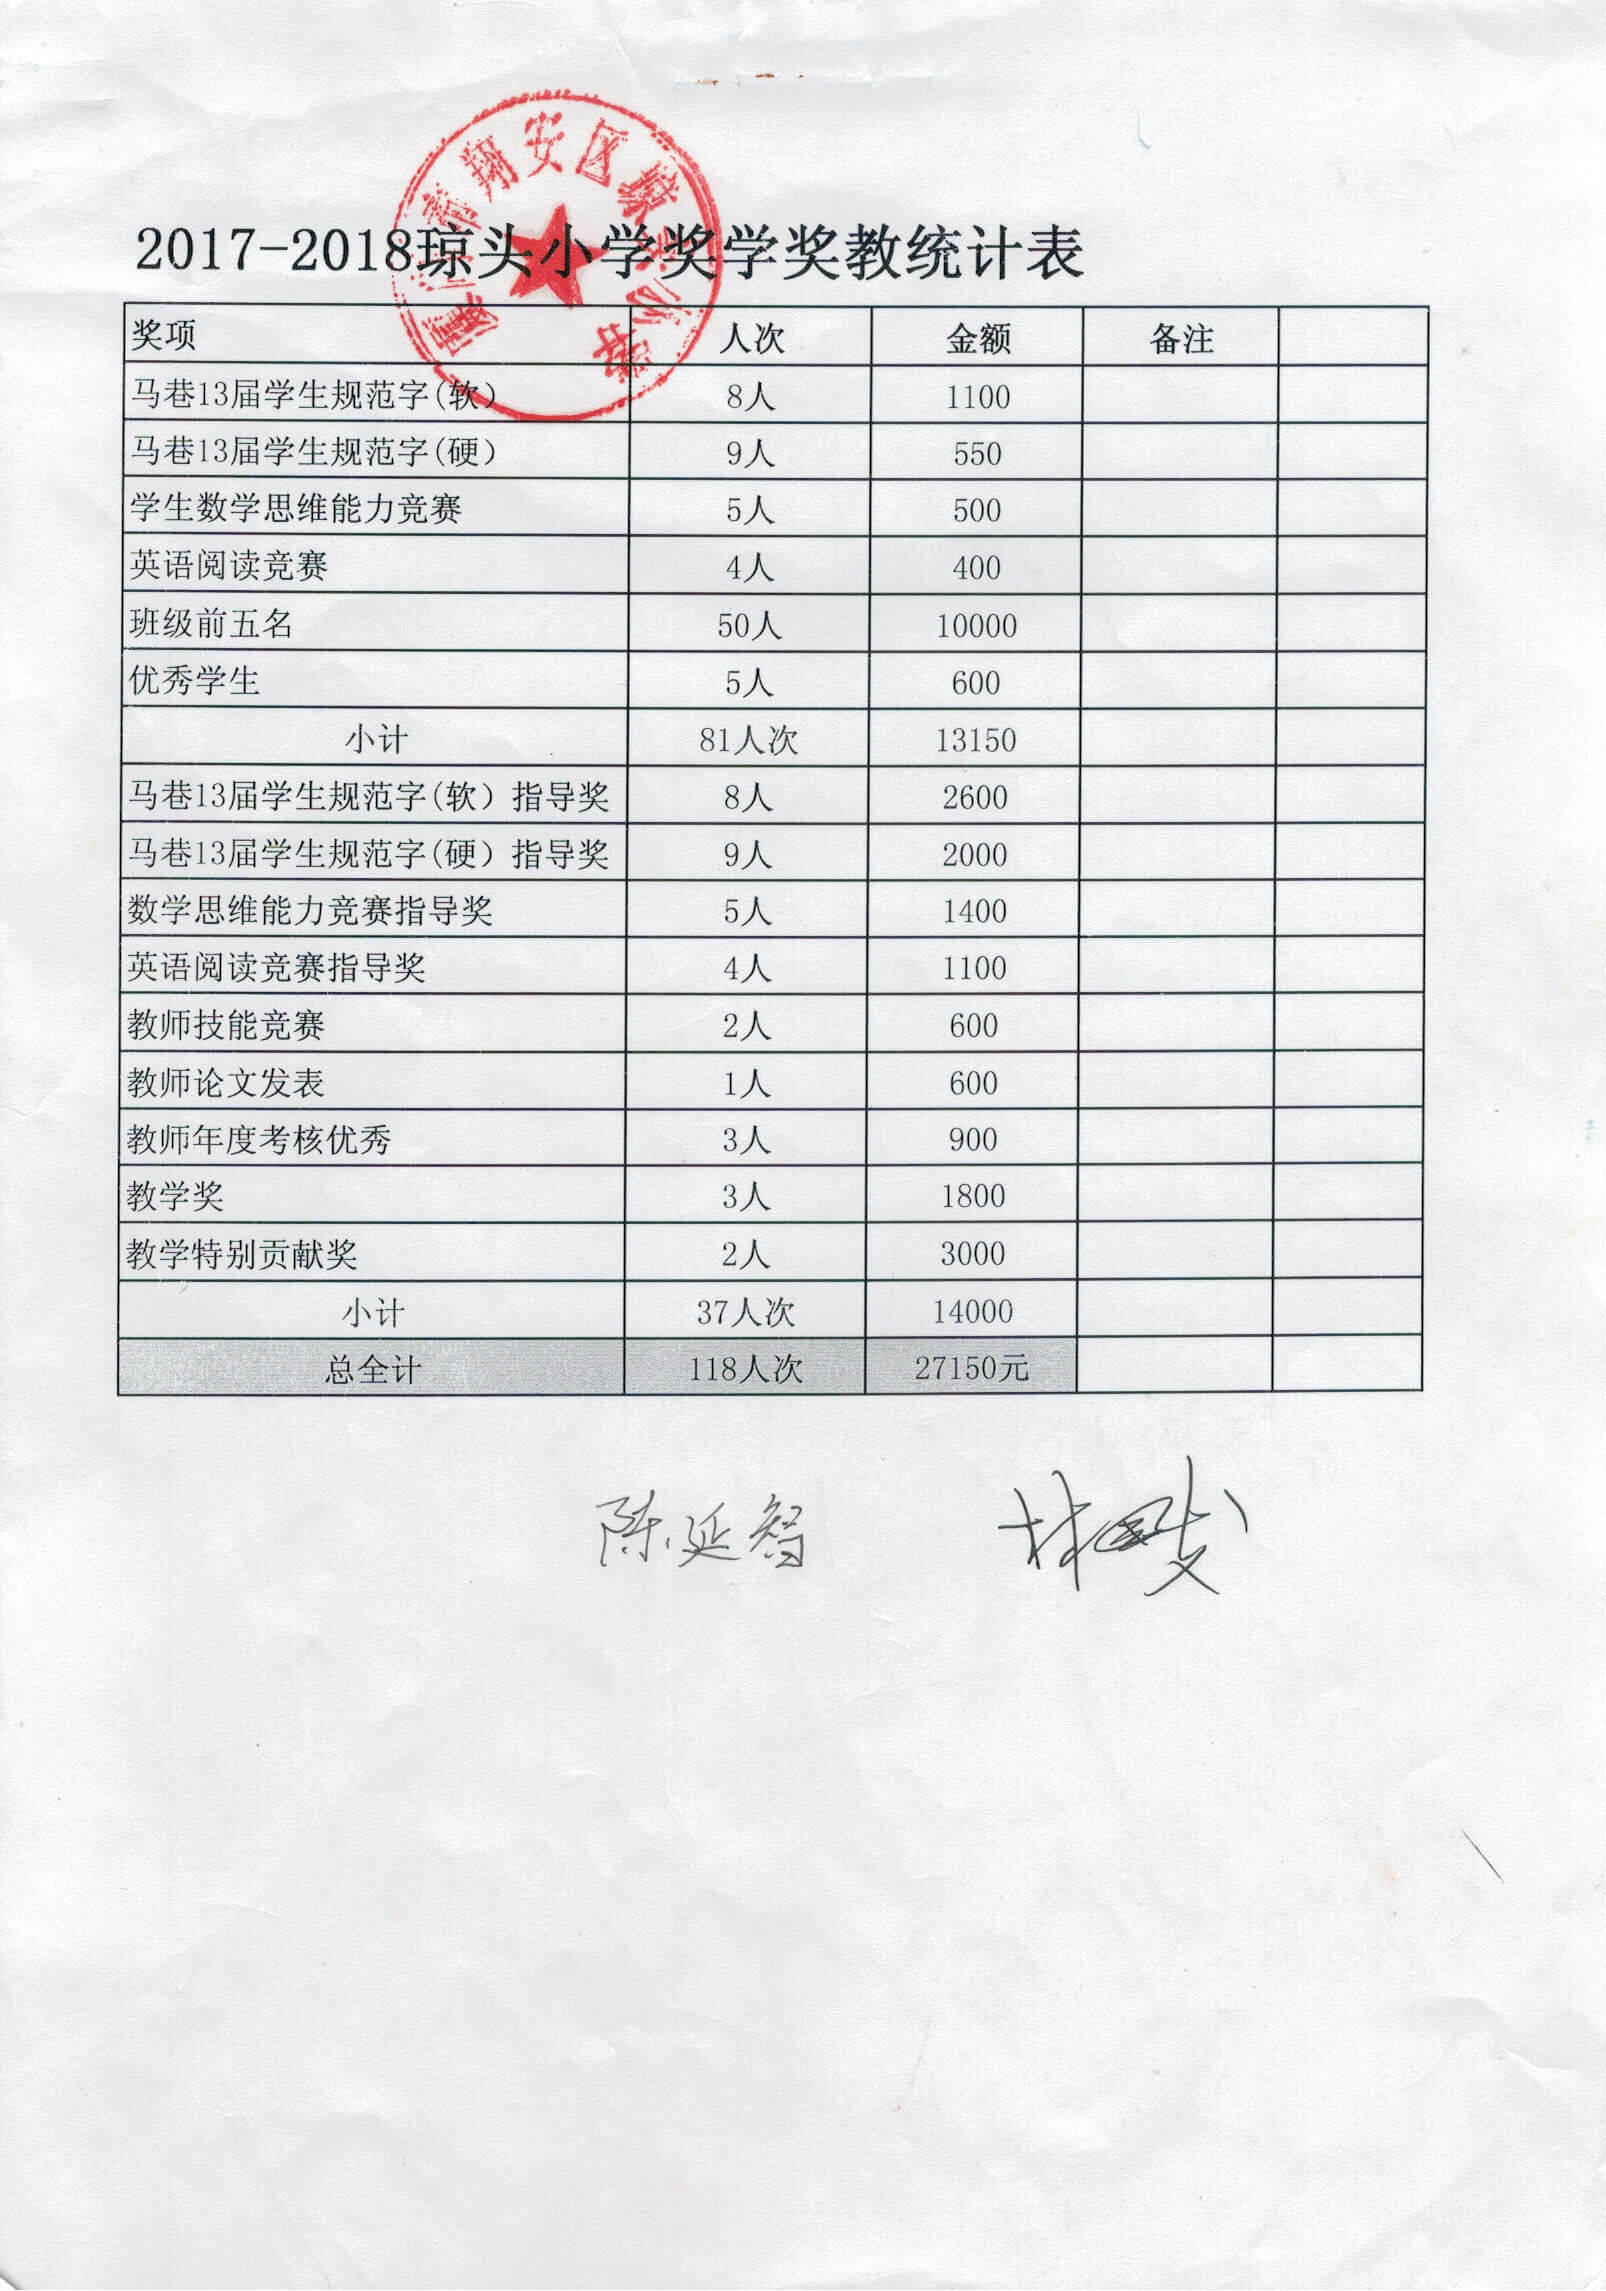 厦门市翔安区琼头小学
2017-2018琼头小学奖学奖教统计表
奖项 人次 金额 备注
马巷13届学生规范字(软） 8人 1100
马巷13届学生规范字(硬） 9人 550
学生数学思维能力竞赛 5人 500
英语阅读竞赛 4人 400
班级前五名 50人 10000
优秀学生 5人 600
小计 81人次 13150
马巷13届学生规范字(软）指导奖 8人 2600
马巷13届学生规范字(硬）指导奖 9人 2000
数学思维能力竞赛指导奖 5人 1400
英语阅读竞赛指导奖 4人 1100
教师技能竞赛 2人 600
教师论文发表 1人 600
教师年度考核优秀 3人 900
教学奖 3人 1800
教学特别贡献奖 2人 3000
小计 37人次 14000
总全计 118人次 27150元
陈延智